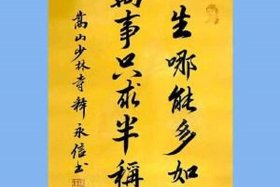 生哪能多如
萬事只求半稱
嵩山少林寺釋永信書